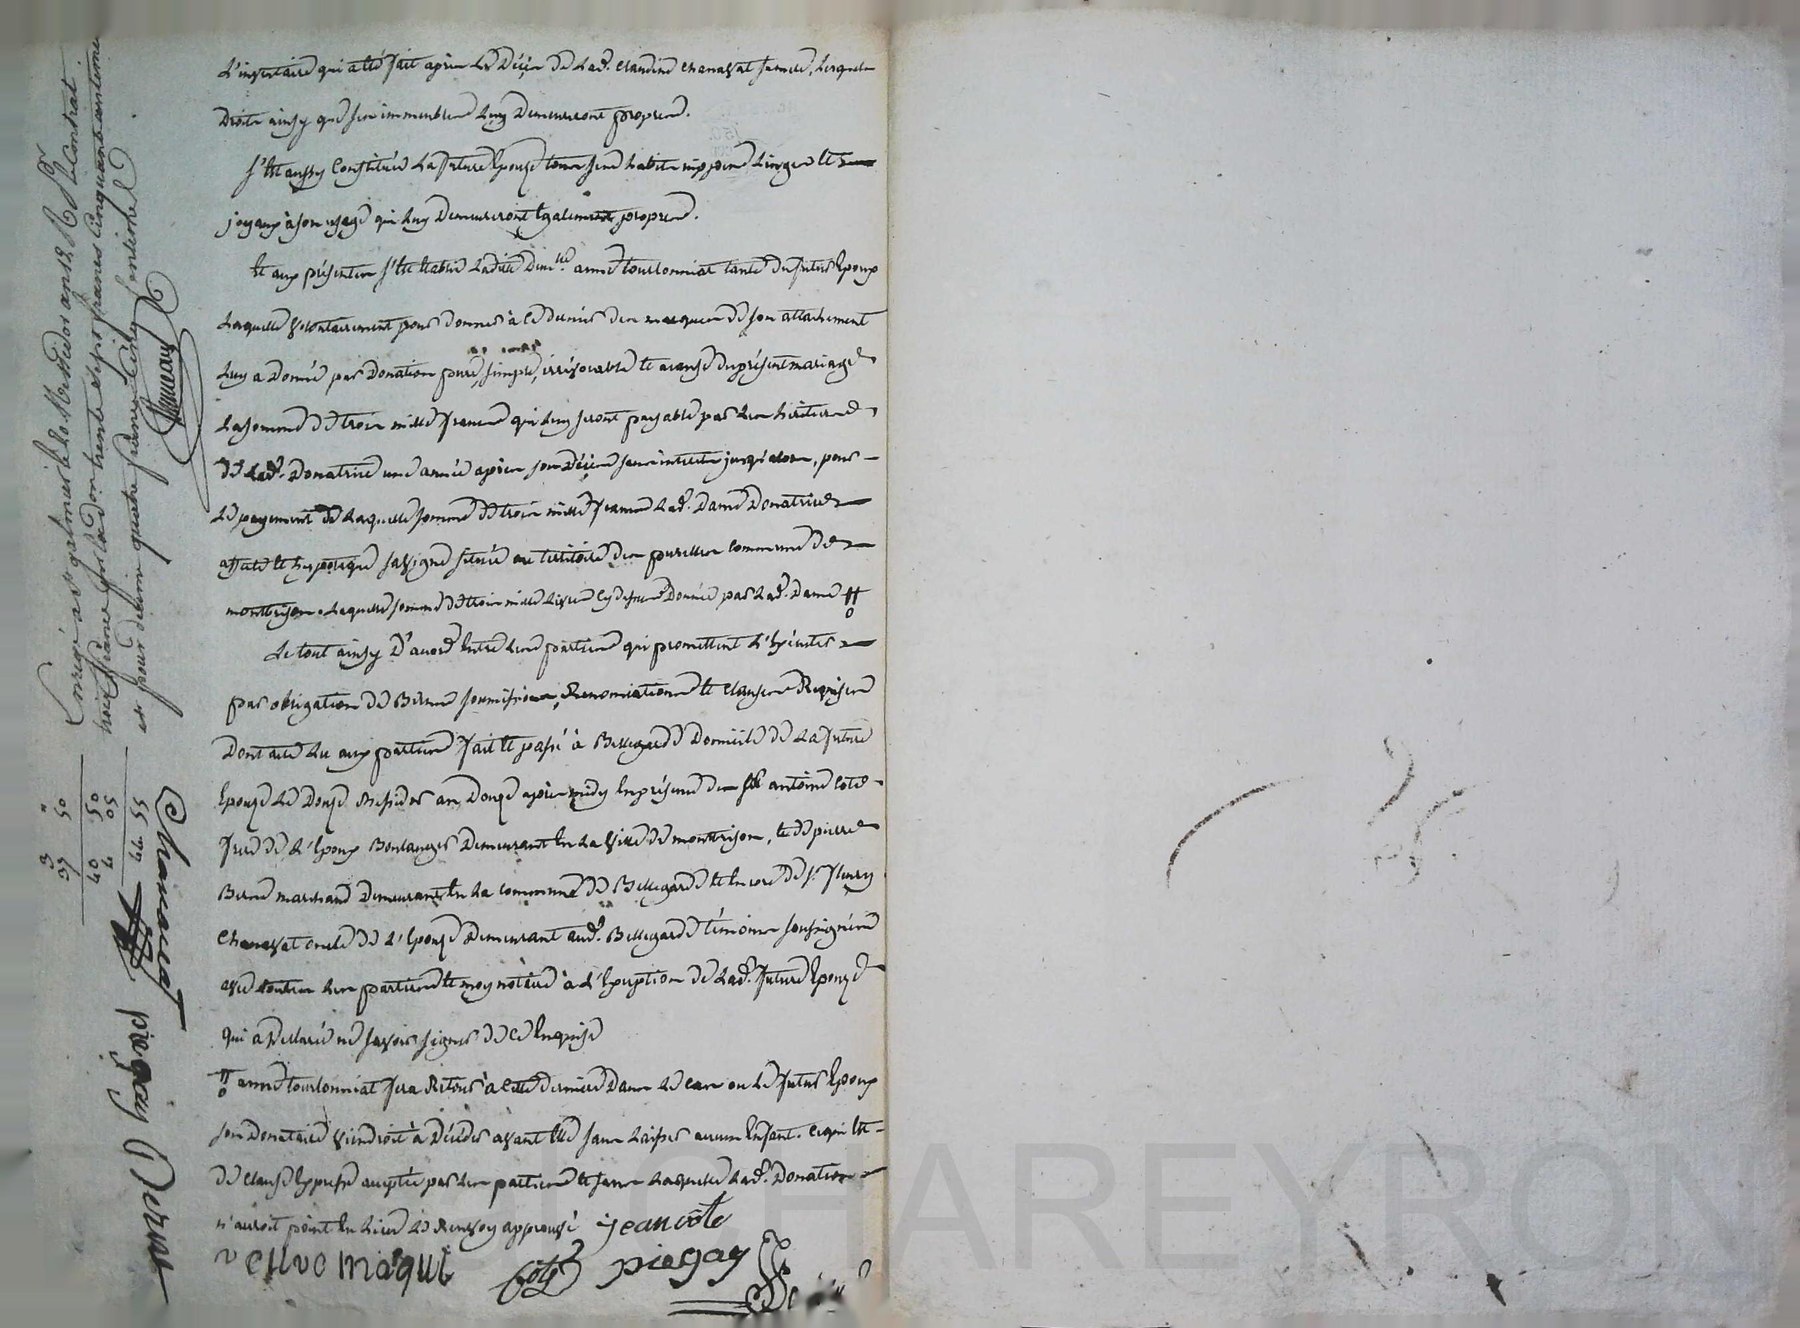 L'inventaire qui a été fait après le Décès de lad. Claudine Chanavat femelle, lesquels
Droits ainsy que ses immeubles luy Demeureront propres.
S'est aussy Constituée La future Epouse tous ses habits nippes Linges et
joyaux à son usage qui luy Demeureront Egalement propres.
Et aux présentes s'est Etablie Ladite Dem.lle anne tourlonniat tante du futur Epoux
Laquelle volontairement pour donner à Ce dernier des marques de son attachement
Luy a Donné par Donation pure, simple, irrévocable Et acause du présent mariage
La somme de trois mille francs qui luy seront payable par les héritiers
de Lad. Donatrice une année après son Décès sans intérêts jusqu'alors, pour
Le payement de Laquelle somme de trois mille francs Lad. Dame Donatrice
affecte Et hypotèque sa vigne située au territoire des purelles Commune de
montbrison. Laquelle somme de trois mille Livres Cy dessus Donnée par Lad. Dame #
Le tout ainsy D'acord Entre Les parties qui promettent L'Exécuter
par obligation de Biens soumissions, Renonciations Et Clauses Requises
Dont acte Lu aux parties fait Et passé à Bellegarde Domicile de La future
Epouse Le Douze Messidor an Douze après midy En présence de antoine Cote
frere de L'Epoux Boulanger Demeurant En La ville de montbrison, Et de pierre
Berne marchand Demeurant En La Commune de Bellegarde Et Encore de S.r fleury
Chanavat oncle de L'Epouse Demeurant aud. Bellegarde témoins soussignés
avec toutes Les parties Et moy notaire à L'Exception de Lad. future Epouse
qui a Déclaré ne savoir signer de Ce Enquise
# anne tourlonniat fera Retour à Cette dernière Dans Le Cas ou Le futur Epoux
son Donataire viendroit à Décéder avant Elle sans Laisser aucun Enfant. Ce qui Est
de Clause Expresse acceptée par Les parties Et sans Laquelle Lad. Donation
n'auroit point Eu Lieu Le Renvoy approuvé jean cote
veuve maqui Cote piegay
Enregistré à St galmier le 20 Messidor an 12. R. p.r le Contrat
trois francs pour la don. trente sept francs cinquante centimes
et pour décime quatre francs cinq centimes
Chanavat piegay Berne
3 "
37 50
40 50
4 05
44 55
J CHAREYRON